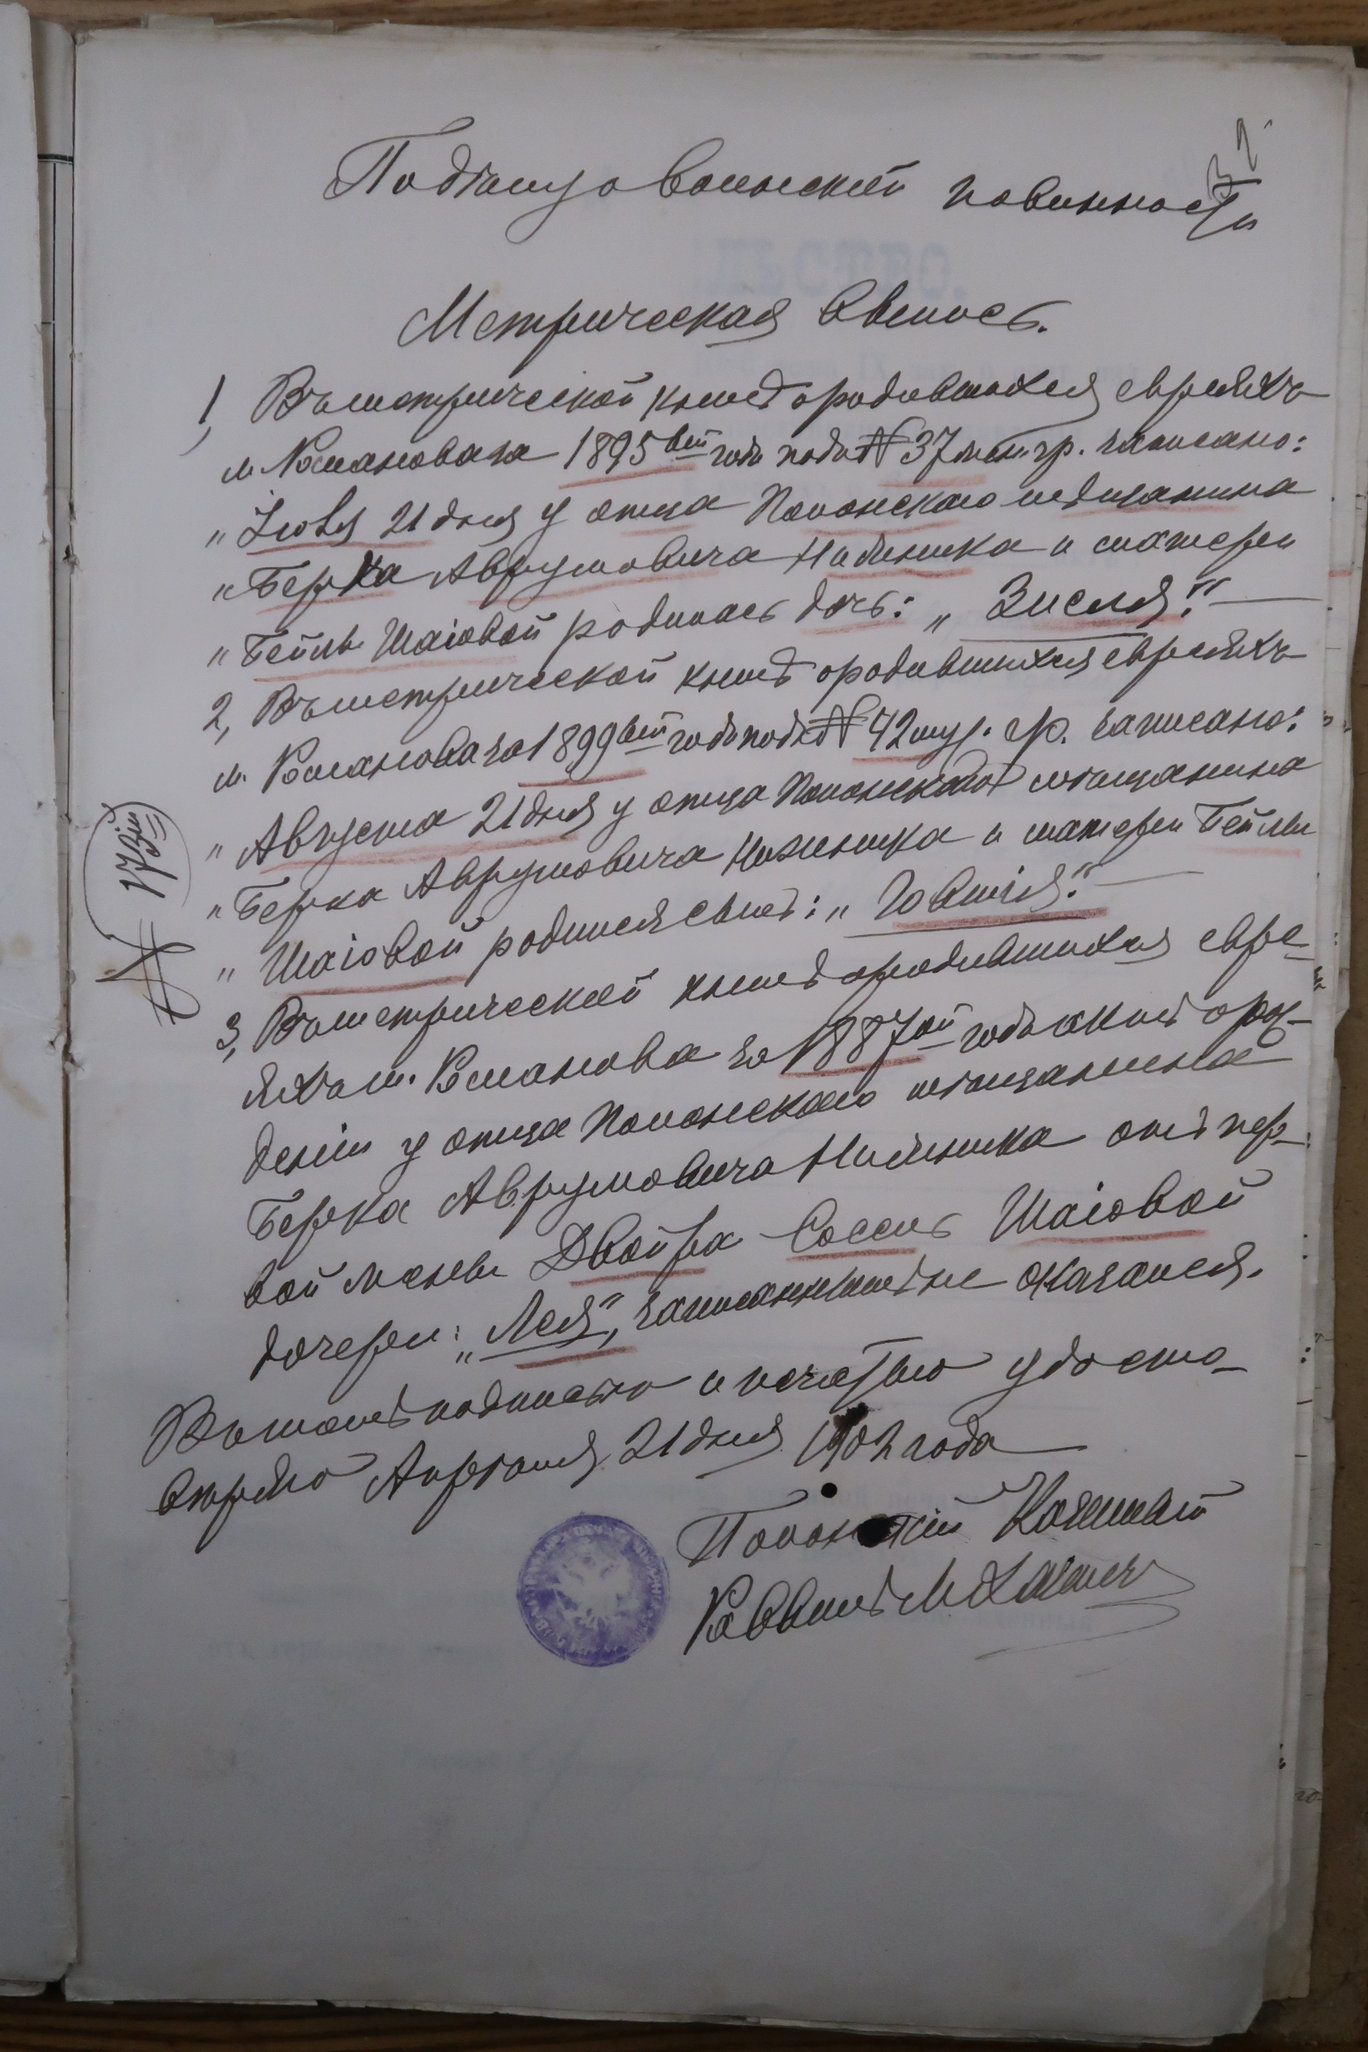 По делу о воинской повинности
Метрическая выпись.
1, Въ метрической книгѣ о родившихся евреяхъ
м. Романова за 1895 вый годъ подъ № 37 жен. гр. записано:
„ Іюля 21 дня у отца Полонскаго мѣщанина
„ Берка Аврумовича и матери
„ Бейлы Шаіовой родилась дочь: „Зисля".
2, Въ метрической книгѣ о родившихся евреяхъ
м. Романова за 1899 вый годъ подъ № 42 муж. гр. записано:
„ Августа 21 дня у отца Полонскаго мѣщанина
„ Берка Аврумовича и матери Бейлы
„ Шаіовой родился сынъ: „
3, Въ метрической книгѣ о родившихся евре-
яхъ м. Романова за 1887 ой годъ актъ о рож-
деніи у отца Полонскаго мѣщанина
Берка Аврумовича отъ пер-
вой жены Двойра Соссы Шаіовой
дочери: „Лея", записаннымъ не оказался.
Въ томъ подписью и печатью удосто-
вѣряю Апрѣля 21 дня 1902 года
Полонскій Казенный
Раввинъ